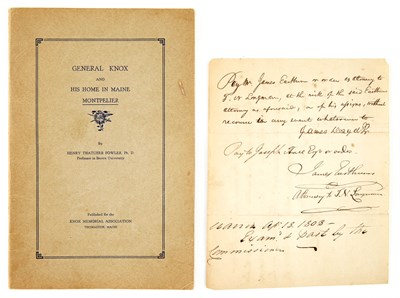 GENERAL KNOX
AND
HIS HOME IN MAINE
MONTPELIER
By
HENRY THATCHER FOWLER, Ph. D.
Professor in Brown University
Published for the
KNOX MEMORIAL ASSOCIATION
THOMASTON, MAINE
Pay Mr. James Eastham or order as attorney to
at the risk of the said Eastham
attorney as aforesaid, or of his assigns, without
recourse in any event whatsoever to
James
Pay to Joseph Esqr or order
James Eastham
Attorney to
Ap 13. 1803 -
& past by the
Commissioners